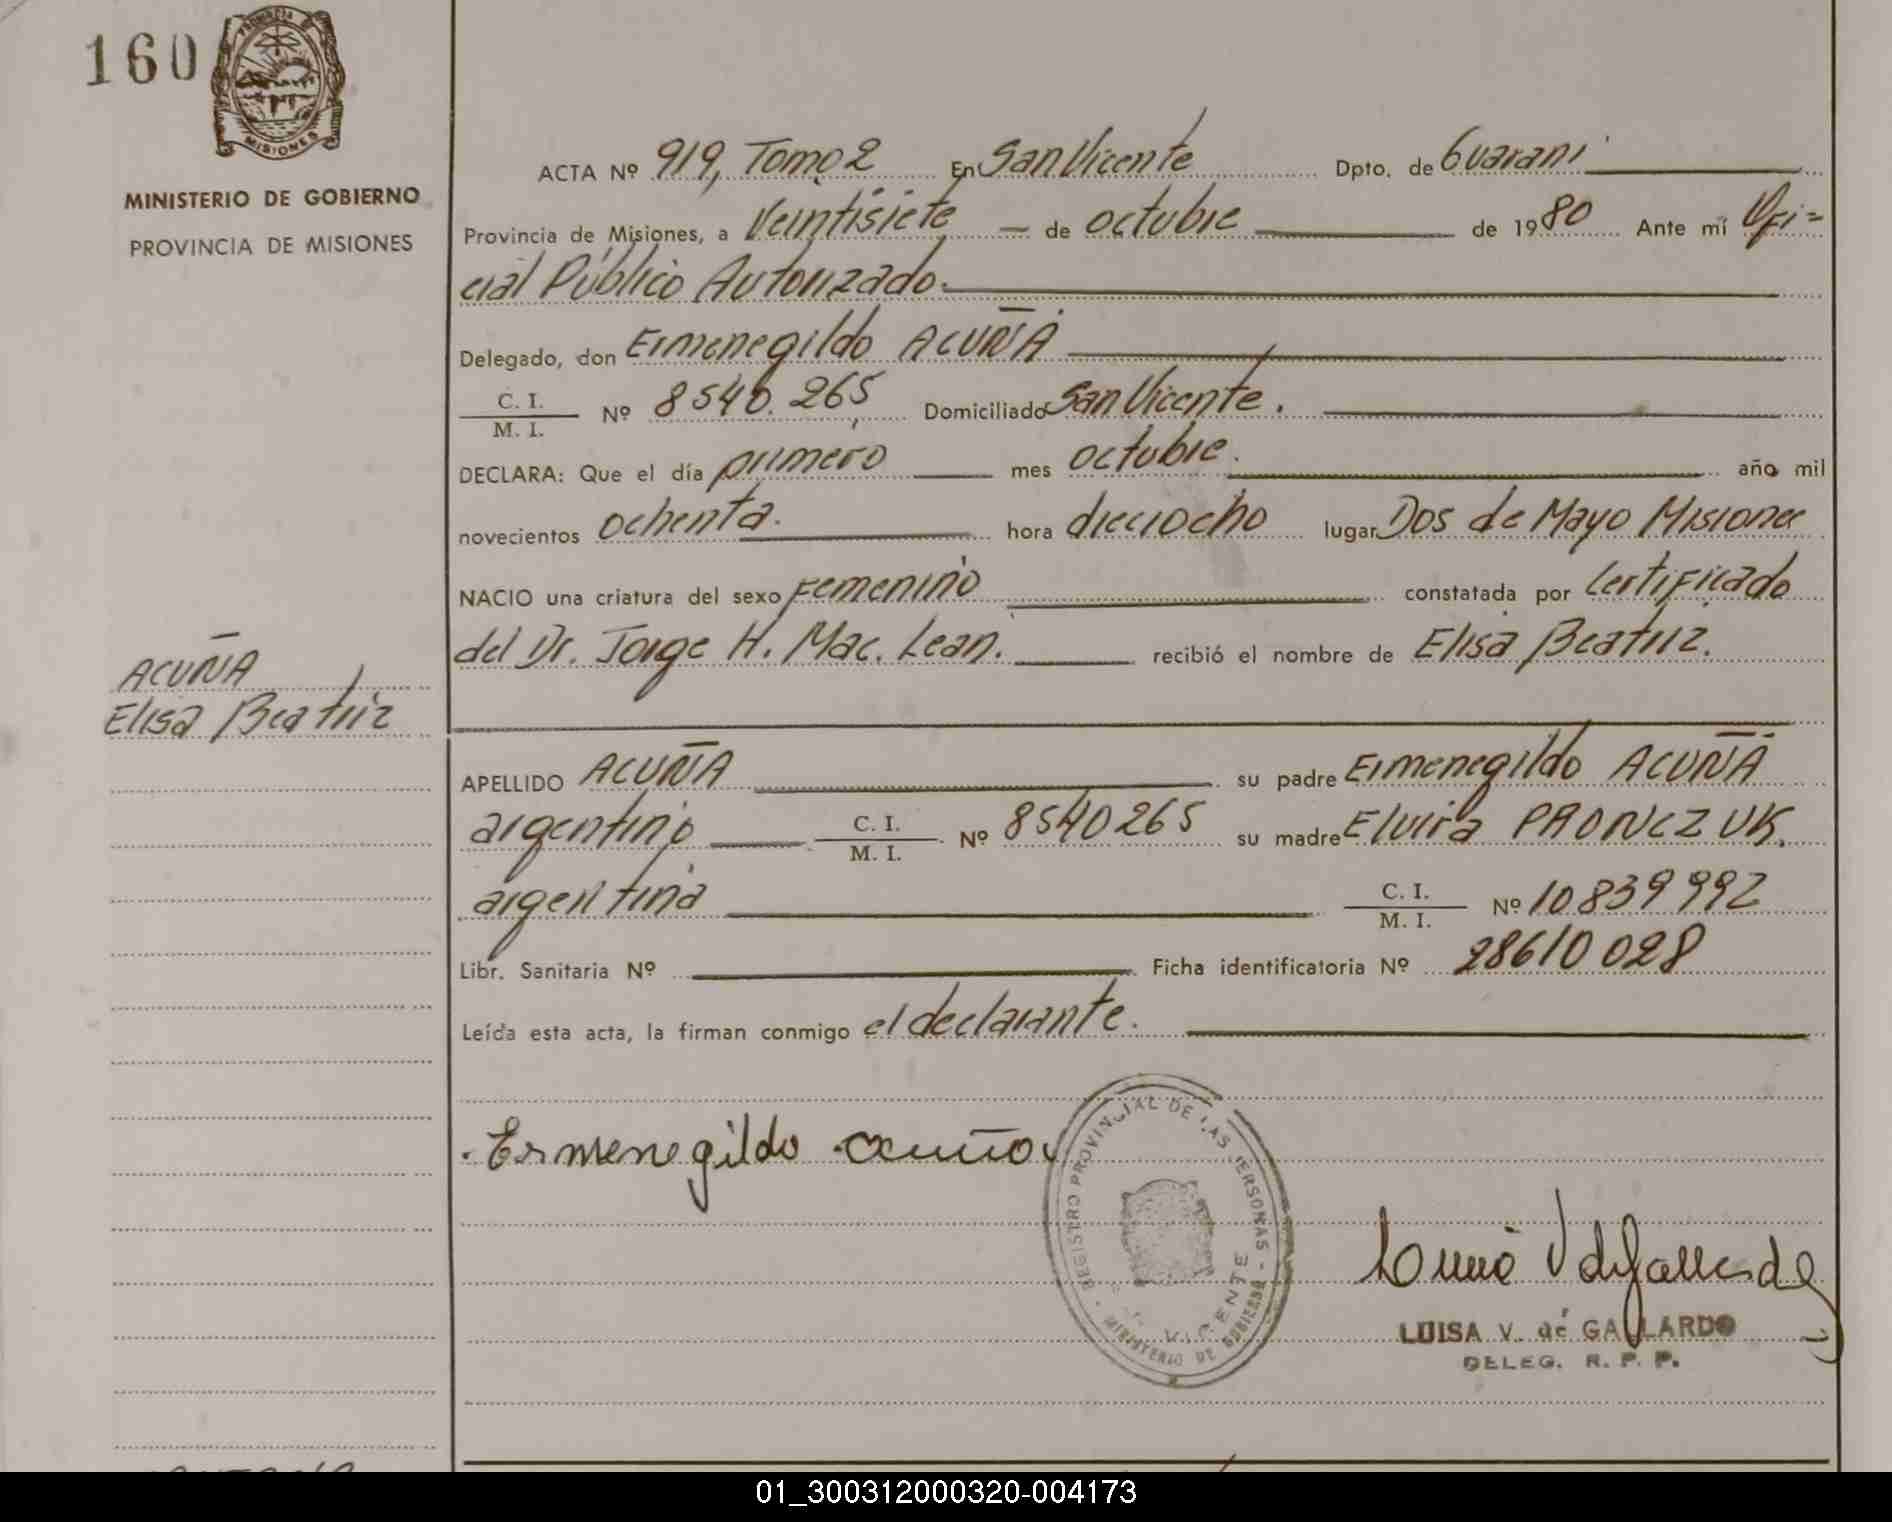 160
PROVINCIA
MISIONES
MINISTERIO DE GOBIERNO
PROVINCIA DE MISIONES
ACUÑA
Elisa Beatriz
ACTA Nº 919, Tomo 2 En San Vicente Dpto. de Guaraní
Provincia de Misiones, a Veintisiete — de octubre de 1980 Ante mí Ofi=
cial Público Autorizado.
Delegado, don Ermenegildo ACUÑA
C. I.
M. I. Nº 8540.265 Domiciliado San Vicente.
DECLARA: Que el día primero mes octubre. año mil
novecientos ochenta. hora dieciocho lugar Dos de Mayo Misiones
NACIO una criatura del sexo Femenino constatada por Certificado
del Dr. Jorge H. Mac. Lean. recibió el nombre de Elisa Beatriz.
APELLIDO ACUÑA su padre Ermenegildo ACUÑA
argentino C. I. M. I. Nº 8540265 su madre Elvira PRONCZUK.
argentina C. I. M. I. Nº 10839992
Libr. Sanitaria Nº Ficha identificatoria Nº 28610028
Leída esta acta, la firman conmigo el declarante.
Ermenegildo acuña
REGISTRO PROVINCIAL DE LAS PERSONAS - MINISTERIO DE GOBIERNO
VICENTE
LUISA V. de GALLARDO
DELEG. R. P. P.
01_300312000320-004173